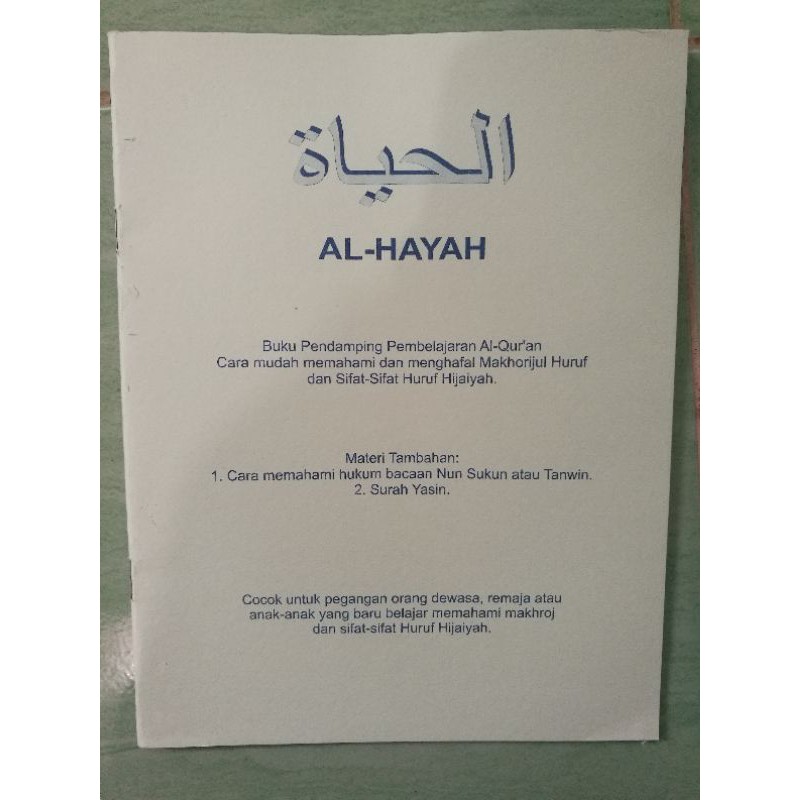 الحياة
AL-HAYAH
Buku Pendamping Pembelajaran Al-Qur'an
Cara mudah memahami dan menghafal Makhorijul Huruf
dan Sifat-Sifat Huruf Hijaiyah.
Materi Tambahan:
1. Cara memahami hukum bacaan Nun Sukun atau Tanwin.
2. Surah Yasin.
Cocok untuk pegangan orang dewasa, remaja atau
anak-anak yang baru belajar memahami makhroj
dan sifat-sifat Huruf Hijaiyah.